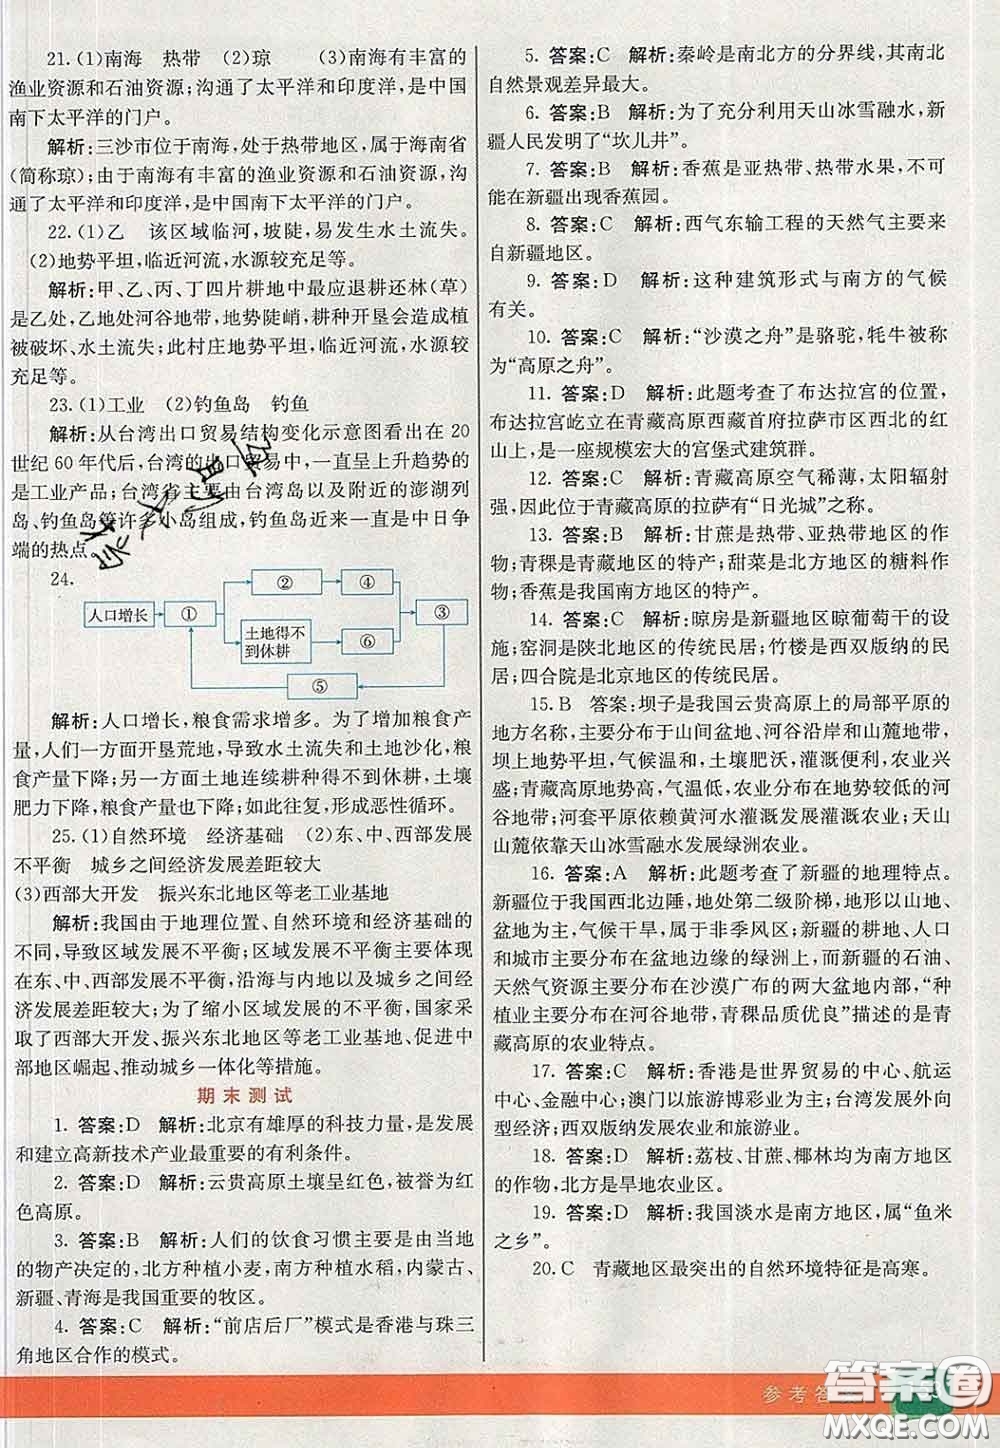 21. (1)南海　热带　(2)琼　(3)南海有丰富的
渔业资源和石油资源;沟通了太平洋和印度洋,是中国
南下太平洋的门户。
解析:三沙市位于南海,处于热带地区,属于海南省
(简称琼);由于南海有丰富的渔业资源和石油资源,沟通
了太平洋和印度洋,是中国南下太平洋的门户。
22. (1)乙　该区域临河,坡陡,易发生水土流失。
(2)地势平坦,临近河流,水源较充足等。
解析:甲、乙、丙、丁四片耕地中最应退耕还林(草)
的是乙处,乙地处河谷地带,地势陡峭,耕种开垦会造成植
被破坏、水土流失;此村庄地势平坦,临近河流,水源较
充足等。
23. (1)工业　(2)钓鱼岛　钓鱼
解析:从台湾出口贸易结构变化示意图看出在 20
世纪 60 年代后,台湾的出口贸易中,一直呈上升趋势的
是工业产品;台湾省主要由台湾岛以及附近的澎湖列
岛、钓鱼岛等许多小岛组成,钓鱼岛近来一直是中日争
端的热点。
24.
② ④
人口增长 ① ③
土地得不
到休耕 ⑥
⑤
解析:人口增长,粮食需求增多。为了增加粮食产
量,人们一方面开垦荒地,导致水土流失和土地沙化,粮
食产量下降;另一方面土地连续耕种得不到休耕,土壤
肥力下降,粮食产量也下降;如此往复,形成恶性循环。
25. (1)自然环境　经济基础　(2)东、中、西部发展
不平衡　城乡之间经济发展差距较大
(3)西部大开发　振兴东北地区等老工业基地
解析:我国由于地理位置、自然环境和经济基础的
不同,导致区域发展不平衡;区域发展不平衡主要体现
在东、中、西部发展不平衡,沿海与内地以及城乡之间经
济发展差距较大;为了缩小区域发展的不平衡,国家采
取了西部大开发、振兴东北地区等老工业基地、促进中
部地区崛起、推动城乡一体化等措施。
期末测试
1. 答案:D　解析:北京有雄厚的科技力量,是发展
和建立高新技术产业最重要的有利条件。
2. 答案:D　解析:云贵高原土壤呈红色,被誉为红
色高原。
3. 答案:B　解析:人们的饮食习惯主要是由当地
的物产决定的,北方种植小麦,南方种植水稻,内蒙古、
新疆、青海是我国重要的牧区。
4. 答案:C　解析:“前店后厂”模式是香港与珠三
角地区合作的模式。
5. 答案:C　解析:秦岭是南北方的分界线,其南北
自然景观差异最大。
6. 答案:B　解析:为了充分利用天山冰雪融水,新
疆人民发明了“坎儿井”。
7. 答案:B　解析:香蕉是亚热带、热带水果,不可
能在新疆出现香蕉园。
8. 答案:C　解析:西气东输工程的天然气主要来
自新疆地区。
9. 答案:D　解析:这种建筑形式与南方的气候
有关。
10. 答案:C　解析:“沙漠之舟”是骆驼,牦牛被称
为“高原之舟”。
11. 答案:D　解析:此题考查了布达拉宫的位置,
布达拉宫屹立在青藏高原西藏首府拉萨市区西北的红
山上,是一座规模宏大的宫堡式建筑群。
12. 答案:C　解析:青藏高原空气稀薄,太阳辐射
强,因此位于青藏高原的拉萨有“日光城”之称。
13. 答案:B　解析:甘蔗是热带、亚热带地区的作
物;青稞是青藏地区的特产;甜菜是北方地区的糖料作
物;香蕉是我国南方地区的特产。
14. 答案:C　解析:晾房是新疆地区晾葡萄干的设
施;窑洞是陕北地区的传统民居;竹楼是西双版纳的民
居;四合院是北京地区的传统民居。
15. B　答案:坝子是我国云贵高原上的局部平原的
地方名称,主要分布于山间盆地、河谷沿岸和山麓地带,
坝上地势平坦,气候温和,土壤肥沃,灌溉便利,农业兴
盛;青藏高原地势高,气温低,农业分布在地势较低的河
谷地带;河套平原依赖黄河水灌溉发展灌溉农业;天山
山麓依靠天山冰雪融水发展绿洲农业。
16. 答案:A　解析:此题考查了新疆的地理特点。
新疆位于我国西北边陲,地处第二级阶梯,地形以山地、
盆地为主,气候干旱,属于非季风区。新疆的耕地、人口
和城市主要分布在盆地边缘的绿洲上,而新疆的石油、
天然气资源主要分布在沙漠广布的两大盆地内部,“种
植业主要分布在河谷地带,青稞品质优良”描述的是青
藏高原的农业特点。
17. 答案:C　解析:香港是世界贸易的中心、航运
中心、金融中心;澳门以旅游博彩业为主;台湾发展外向
型经济;西双版纳发展农业和旅游业。
18. 答案:D　解析:荔枝、甘蔗、椰林均为南方地区
的作物,北方是旱地农业区。
19. 答案:D　解析:我国淡水是南方地区,属“鱼米
之乡”。
20. C　青藏地区最突出的自然环境特征是高寒。
参考答
答案圈
MXQE.COM